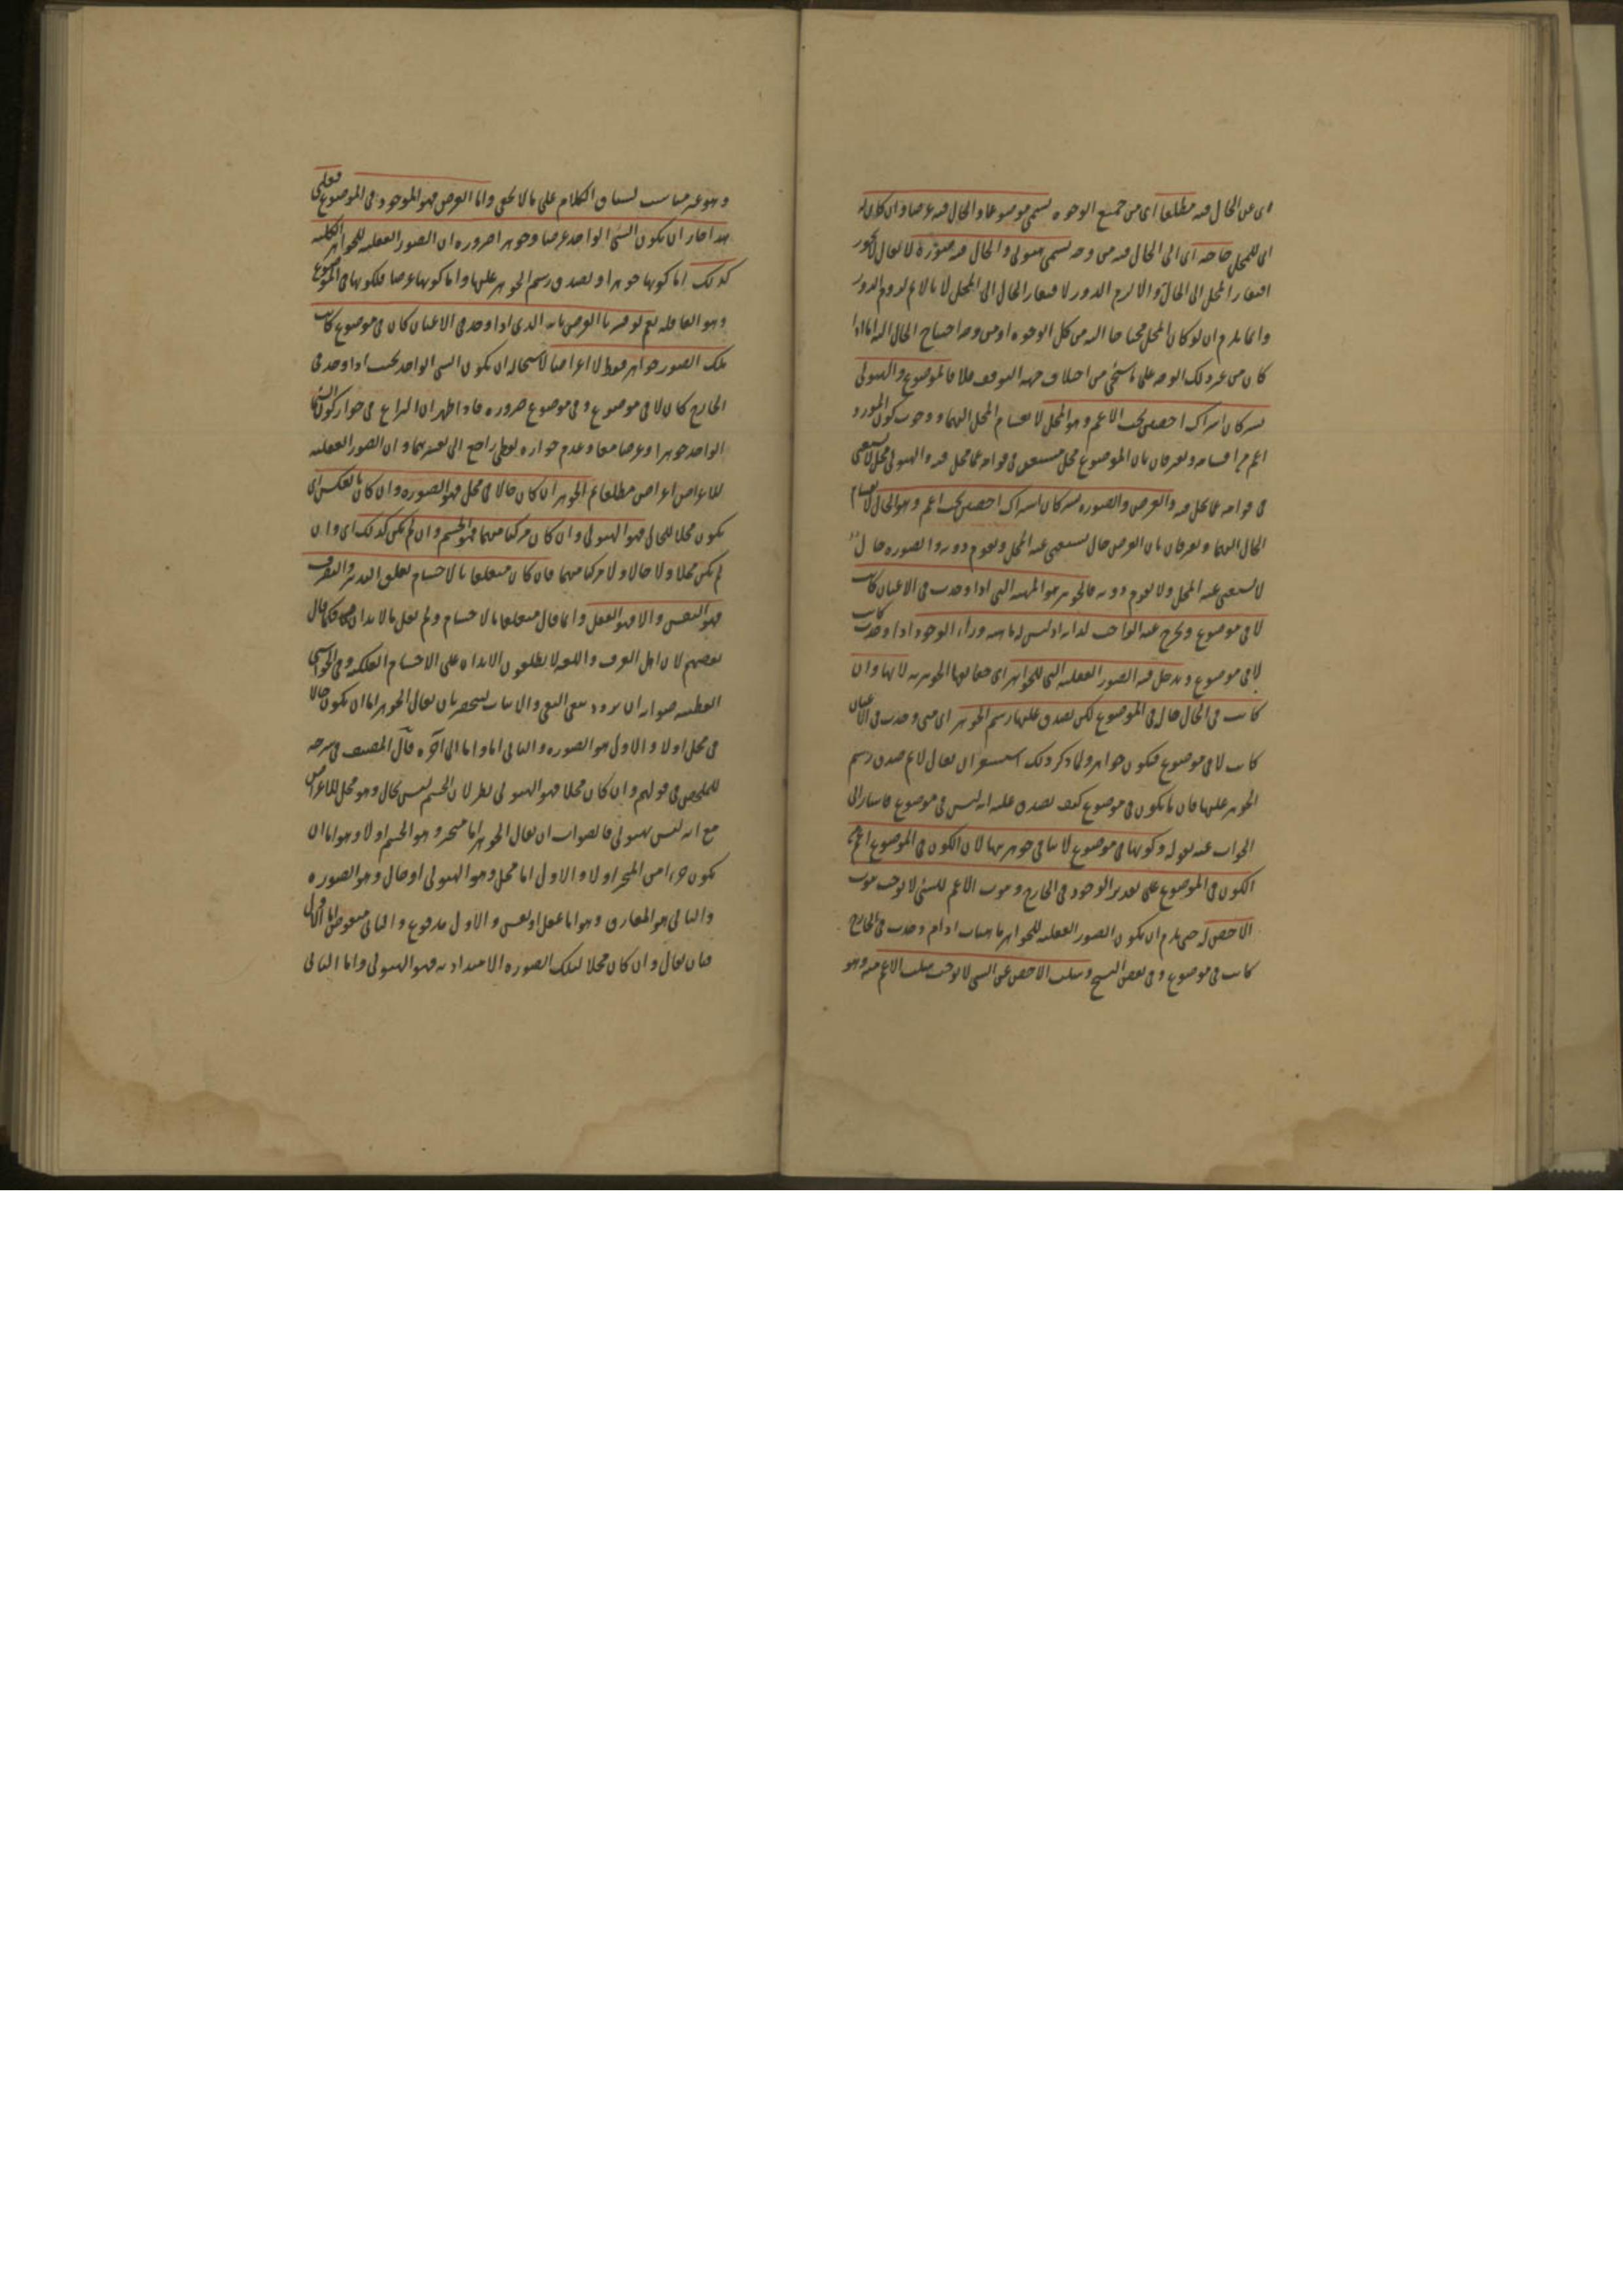 اى عن الحال فيه مطلقا اى من جميع الوجوه يسمى موضوعا والحال فيه عرضا وان كان له
اى للمحل حاجة اى الى الحال فيه من وجه يسمى هيولى والحال فيه صورة لا يقال لا يجوز
افتقار المحل الى الحال والا لزم الدور لافتقار الحال الى المحل لانا لا نم لزوم الدور
وانما يلزم ان لو كان المحل محتاجا اليه من كل الوجوه او من وجه احتياج الحال اليه اما اذا
كان من غير ذلك الوجه على ما سيجئ من اختلاف جهة التوقف فلا فالموضوع والهيولى
يشتركان اشتراك اخصين تحت الاعم وهو المحل لانقسام المحل اليهما ووجوب كون المورد
اعم من اقسامه ويفترقان بان الموضوع محل مستغن فى قوامه عما يحل فيه والهيولى محل لا يستغنى
فى قوامه عما يحل فيه والعرض والصورة يشتركان اشتراك اخصين تحت اعم وهو الحال لانقسام
الحال اليهما ويفترقان بان العرض حال يستغنى عنه المحل ويقوم دونه والصورة حال
لا يستغنى عنه المحل ولا يقوم دونه فالجوهر هو المهية التى اذا وجدت فى الاعيان كانت
لا فى موضوع ويخرج عنه الواجب لذاته اذ ليس له ماهية وراء الوجود اذا وجدت كانت
لا فى موضوع ويدخل فيه الصور العقلية التى للجواهر اى حقايقها الجوهرية لانها وان
كانت فى الحال حالة فى الموضوع لكن يصدق عليها رسم الجوهر اى متى وجدت فى الاعيان
كانت لا فى موضوع فيكون جواهر ولما ذكر ذلك استشعر ان يقال لا نم صدق رسم
الجوهر عليها فان ما يكون فى موضوع كيف يصدق عليه انه ليس فى موضوع فاشار الى
الجواب عنه بقوله وكونها فى موضوع لا ينافى جوهريتها لان الكون فى الموضوع اعم من
الكون فى الموضوع على تقدير الوجود فى الخارج وثبوت الاعم للشئ لا يوجب ثبوت
الاخص له حتى يلزم ان يكون الصور العقلية للجواهر ماهيات اذا وجدت فى الخارج
كانت فى موضوع وفى بعض النسخ وسلب الاخص عن الشئ لا يوجب سلب الاعم عنه وهو
وهو غير مناسب لسياق الكلام على ما لا يخفى واما العرض فهو الموجود فى الموضوع فعلى
هذا جاز ان يكون الشئ الواحد عرضا وجوهرا ضرورة ان الصور العقلية للجواهر الكلية
كذلك اما كونها جوهرا ولصدق رسم الجوهر عليها واما كونها عرضا فلكونها فى الموضوع
وهو العاقلة نعم لو فسرنا العرض بانه الذى اذا وجد فى الاعيان كان فى موضوع كانت
تلك الصور جواهر فقط لا اعراضا لاستحالة ان يكون الشئ الواحد بحيث اذا وجد فى
الخارج كان لا فى موضوع وفى موضوع ضرورة فاذا ظهر ان النزاع فى جواز كون الشئ
الواحد جوهرا وعرضا معا وعدم جوازه لفظى راجع الى تفسيرهما وان الصور العقلية
للاعراض اعراض مطلقا ثم الجوهر ان كان حالا فى محل فهو الصورة وان كان بالعكس اى
يكون محلا للحال فهو الهيولى وان كان مركبا منهما فهو الجسم وان لم يكن كذلك اى وان
لم يكن محلا ولا حالا ولا مركبا منهما فان كان متعلقا بالاجسام تعلق التدبير والتصرف
فهو النفس والا فهو العقل وانما قال متعلقا بالاجسام ولم يقل بالابدان كما قال
بعضهم لان اهل العرف واللغة لا يطلقون الابدان على الاجسام الفلكية وفى الحواشى
القطبية صوابه ان يردد بين النفى والاثبات لينحصر بان يقال الجوهر اما ان يكون حالا
فى محل اولا والاول هو الصورة والثانى اما واما الى آخره قال المصنف فى شرحه
للملخص فى قولهم وان كان محلا فهو الهيولى نظر لان الجسم ليس بحال وهو محل للاعراض
مع انه ليس بهيولى فالصواب ان يقال الجوهر اما متحيز وهو الجسم اولا وهو اما ان
يكون جزءا من المتحيز اولا والاول اما محل وهو الهيولى او حال وهو الصورة
والثانى هو المفارق وهو اما عقل او نفس والاول مدفوع والثانى منقوض اما الاول
فبان يقال وان كان محلا لتلك الصورة الامتدادية فهو الهيولى واما الثانى